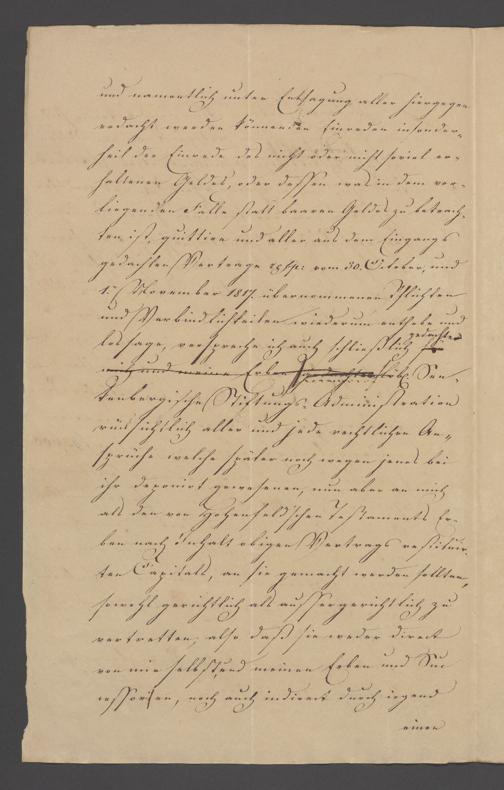 und namentlich unter Entsagung aller hiergegen
erdacht werden könnenden Einreden insonder-
heit der Einrede des nicht oder nicht soviel er-
haltenen Geldes, oder dessen was in dem vor-
liegenden Falle statt baaren Geldes zu betrach-
ten ist, quittire und aller aus dem Eingangs
gedachten Vertrage vom 30. October, und
1. November 1817. übernommenen Pflichten
und Verbindlichkeiten wiederum enthebe und
lossage, verspreche ich auch schließlich gedachte
mich und meine Erben Löbl. Sen-
kenbergische Stiftungs-Administration
rücksichtlich aller und jede rechtlichen An-
sprüche welche später noch wegen jenes bei
ihr deponirt gewesenen, nun aber an mich
als den von Hohenfeld'schen Testaments Er-
ben nach Inhalt obigen Vertrags restituir-
ten Capitals, an sie gemacht werden sollten,
sowohl gerichtlich als aussergerichtlich zu
vertretten, also daß sie weder direct
von mir selbst und meinen Erben und Suc-
cessoren, noch auch indirect durch irgend
einen